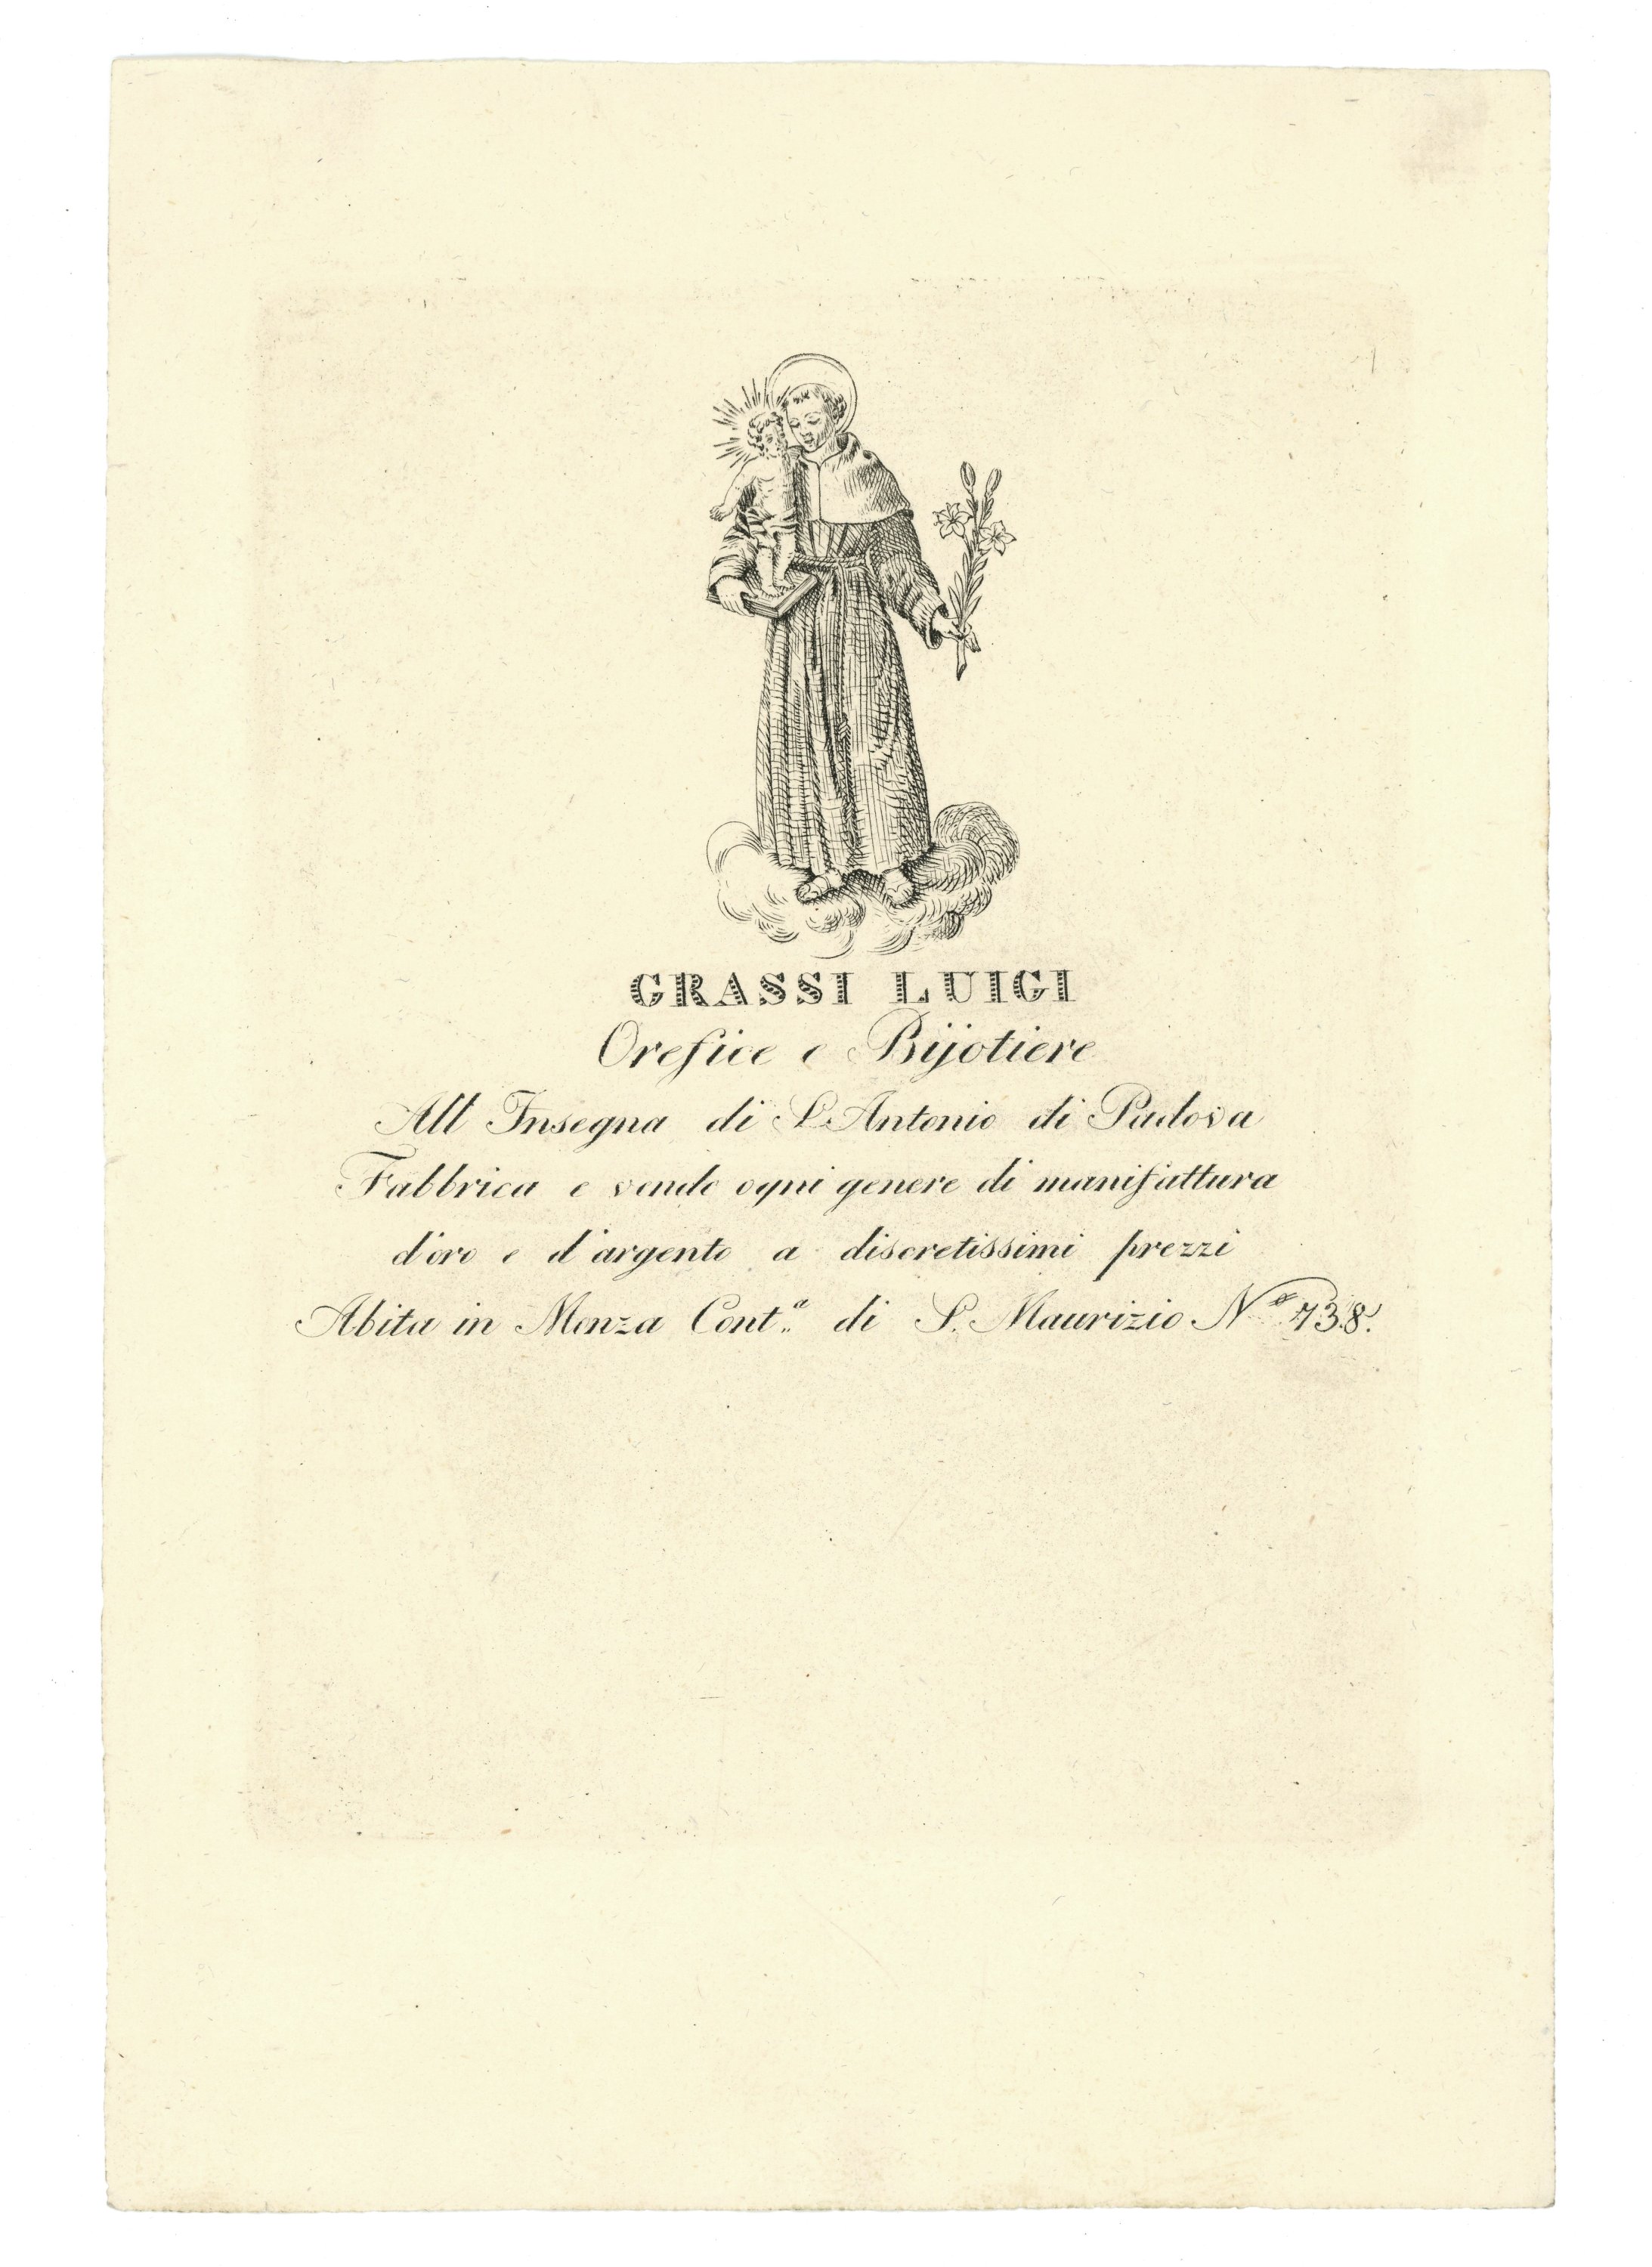 GRASSI LUIGI
Orefice e Bijotiere
All Insegna di S. Antonio di Padova
Fabbrica e vende ogni genere di manifattura
d'oro e d'argento a discretissimi prezzi
Abita in Monza Cont.a di S. Maurizio N.o 738.